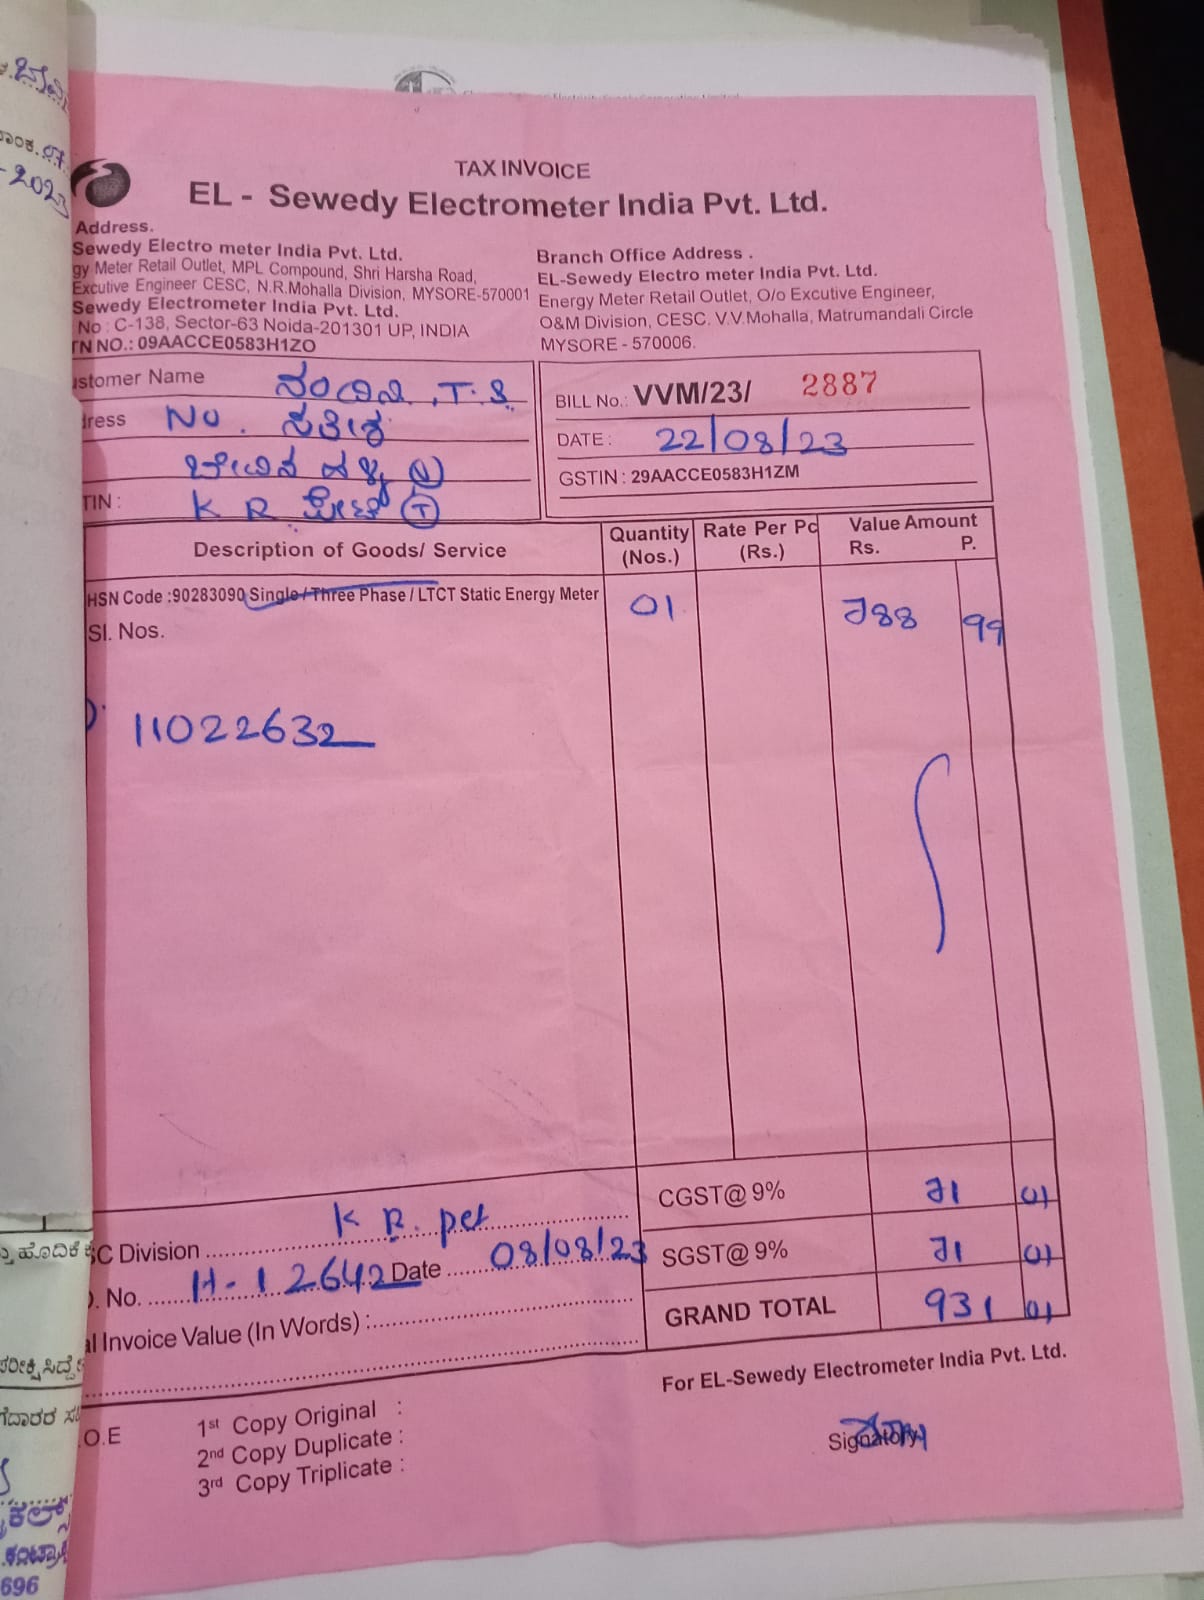 TAX INVOICE
EL - Sewedy Electrometer India Pvt. Ltd.
Address.
Sewedy Electro meter India Pvt. Ltd.
gy Meter Retail Outlet, MPL Compound, Shri Harsha Road,
Excutive Engineer CESC, N.R.Mohalla Division, MYSORE-570001
Sewedy Electrometer India Pvt. Ltd.
No : C-138, Sector-63 Noida-201301 UP, INDIA
TN NO.: 09AACCE0583H1ZO
Branch Office Address .
EL-Sewedy Electro meter India Pvt. Ltd.
Energy Meter Retail Outlet, O/o Excutive Engineer,
O&M Division, CESC. V.V.Mohalla, Matrumandali Circle
MYSORE - 570006.
ustomer Name ನಂದಿನಿ .T.S
dress No.
TIN : K R ಪೇಟೆ (T)
BILL No.: VVM/23/ 2887
DATE : 22/08/23
GSTIN : 29AACCE0583H1ZM
Description of Goods/ Service Quantity (Nos.) Rate Per Pc (Rs.) Value Amount Rs. P.
HSN Code :90283090 Single / Three Phase / LTCT Static Energy Meter 01 788 99
Sl. Nos.
11022632
CGST@ 9% 71 01
SGST@ 9% 71 01
GRAND TOTAL 931 01
SC Division K R. pet
No. H-12642 Date 08/08/23
al Invoice Value (In Words) :
For EL-Sewedy Electrometer India Pvt. Ltd.
.O.E
1st Copy Original :
2nd Copy Duplicate :
3rd Copy Triplicate :
Signatory
-2023
ಹೊದಿಕೆ
696